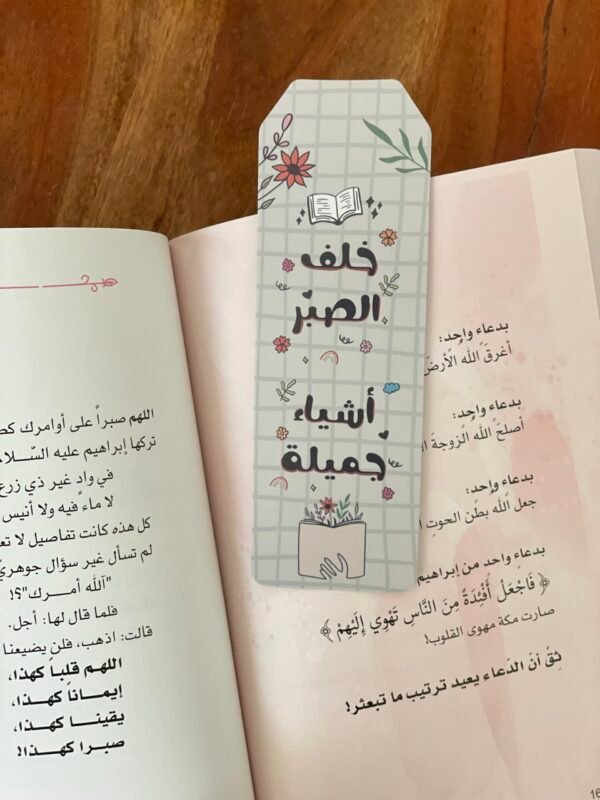 خلف
الصبر
أشياء
جميلة
بدعاء واحد:
أغرق الله الأرض
بدعاء واحد:
أصلح الله الزوجة
بدعاء واحد:
جعل الله بطن الحوت
بدعاء واحد من إبراهيم
﴿ فَاجْعَلْ أَفْئِدَةً مِنَ النَّاسِ تَهْوِي إِلَيْهِمْ ﴾
صارت مكة مهوى القلوب!
ثِقْ أنَ الدعاء يعيد ترتيب ما تبعثر!
16
اللهم صبراً على أوامرك
تركها إبراهيم عليه السّلام
في وادٍ غير ذي زرع
لا ماء فيه ولا أنيس
كل هذه كانت تفاصيل لا
لم تسأل غير سؤال جوهريّ
"آلله أمرك"؟!
فلما قال لها: أجل.
قالت: اذهب، فلن يضيعنا
اللهم قلباً كهذا،
إيماناً كهذا،
يقينا كهذا،
صبرا كهذا!